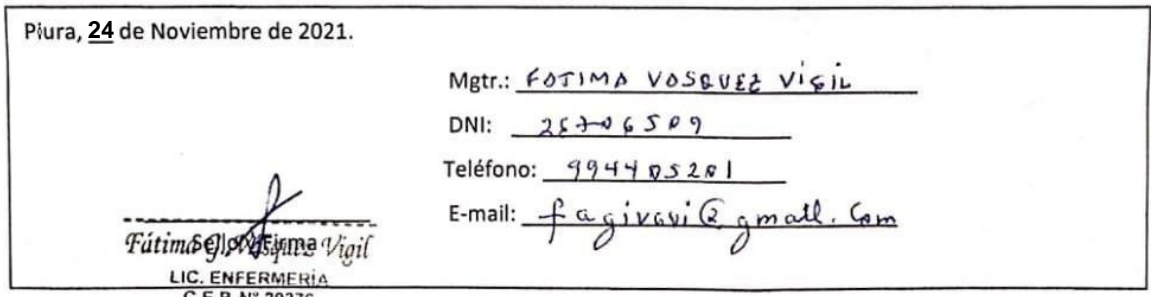 Piura, 24 de Noviembre de 2021.
Mgtr.: FATIMA VASQUEZ VIGIL
DNI:
Teléfono: 994405201
E-mail: fagivavi@gmail.com
Sello y Firma
Fátima G. Vásquez Vigil
LIC. ENFERMERÍA